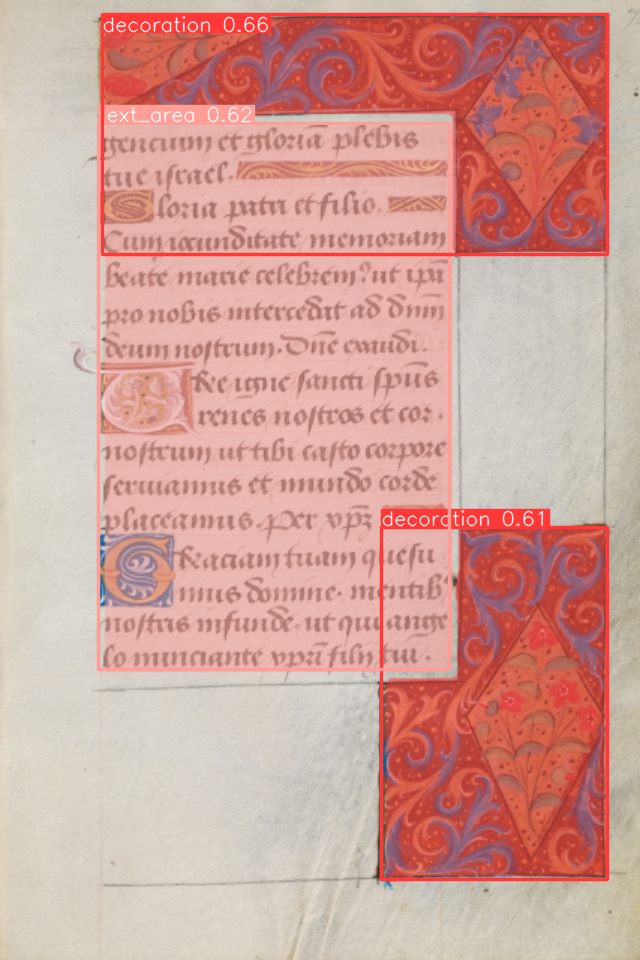 decoration 0.66
ext_area 0.62
gencium et gloriã plebis
tue israel.
Gloria patri et filio.
Cum iocunditate memoriam
beate marie celebrem?ut ipã
pro nobis intercedat ad dnm̃
deum nostrum. Dñe exaudi.
Ure igne sancti sp̃us
renes nostros et cor.
nostrum ut tibi casto corpore
seruiamus et mundo corde
placeamus. Per xp̃z
decoration 0.61
Graciam tuam quesu
mus domine. mentib9
nostris infunde. ut qui ange
lo nunciante xp̃ri filij tui.